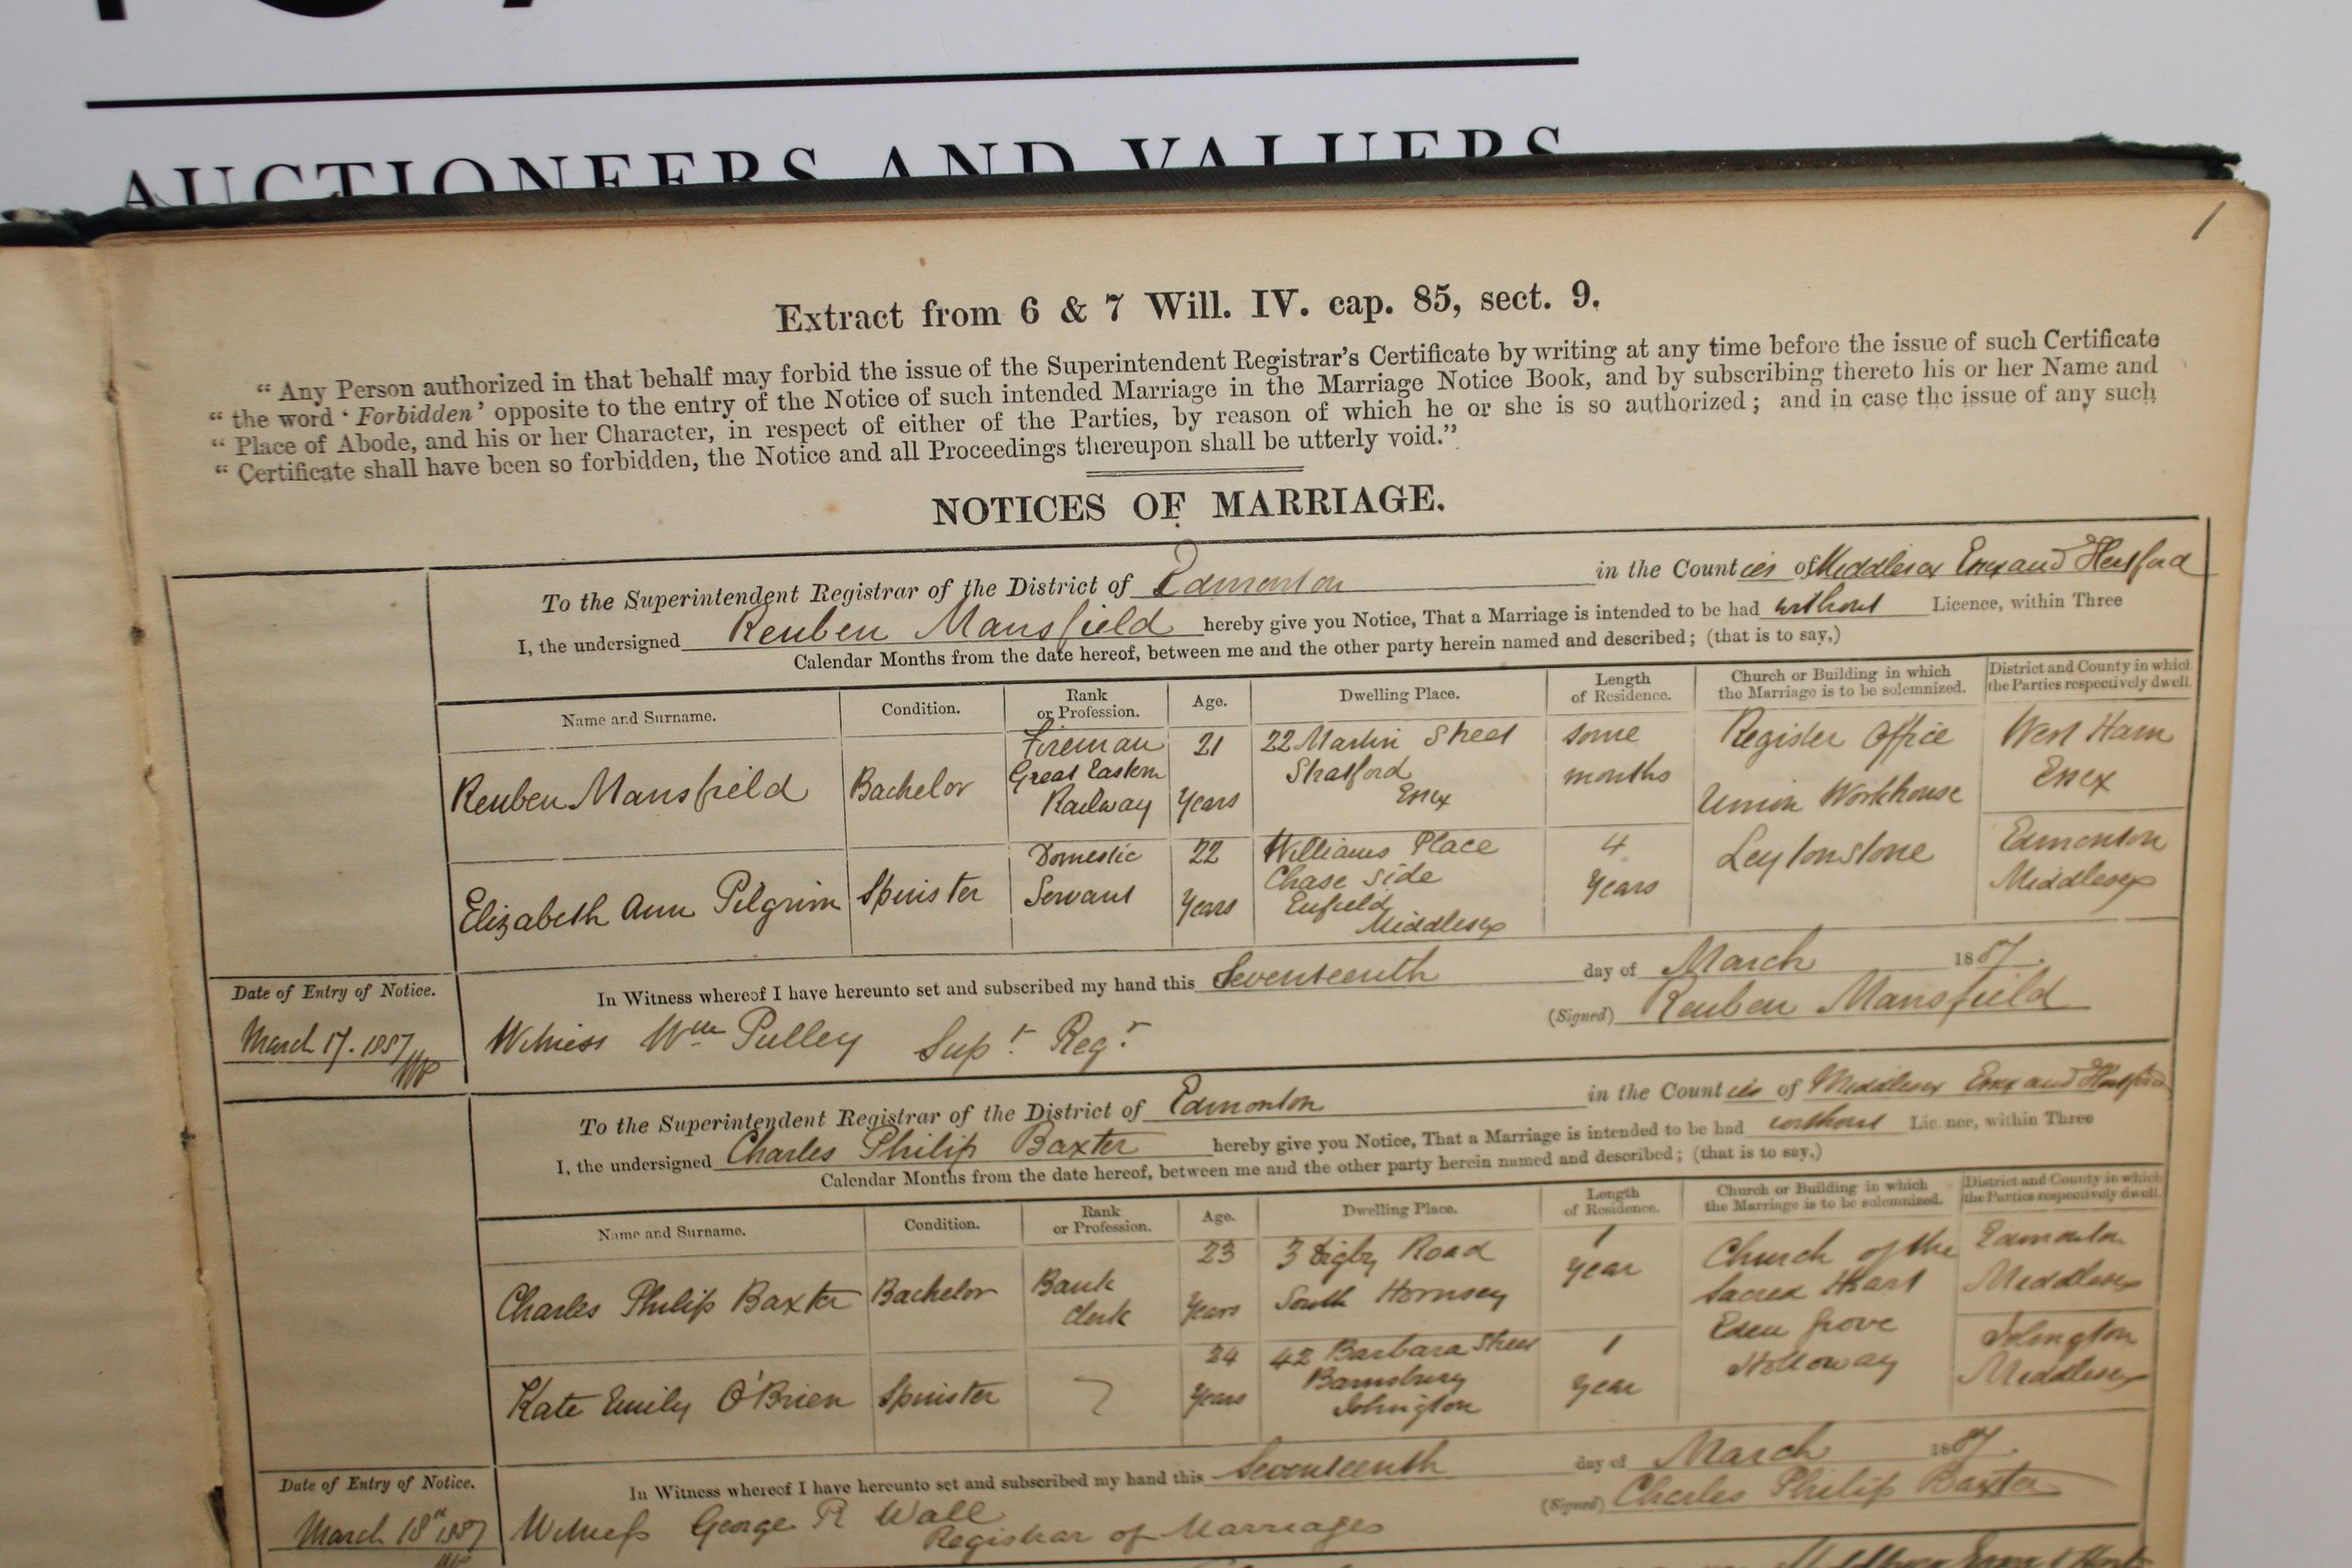 AUCTIONEERS AND VALUERS
1
Extract from 6 & 7 Will. IV. cap. 85, sect. 9.
“ Any Person authorized in that behalf may forbid the issue of the Superintendent Registrar's Certificate by writing at any time before the issue of such Certificate
“ the word ‘ Forbidden ’ opposite to the entry of the Notice of such intended Marriage in the Marriage Notice Book, and by subscribing thereto his or her Name and
“ Place of Abode, and his or her Character, in respect of either of the Parties, by reason of which he or she is so authorized; and in case the issue of any such
“ Certificate shall have been so forbidden, the Notice and all Proceedings thereupon shall be utterly void.”
NOTICES OF MARRIAGE.
To the Superintendent Registrar of the District of Edmonton in the Counties of Middlesex Essex and Hertford
I, the undersigned Reuben Mansfield hereby give you Notice, That a Marriage is intended to be had without Licence, within Three
Calendar Months from the date hereof, between me and the other party herein named and described; (that is to say,)
Name and Surname. Condition. Rank or Profession. Age. Dwelling Place. Length of Residence. Church or Building in which the Marriage is to be solemnized. District and County in which the Parties respectively dwell.
Reuben Mansfield Bachelor Fireman Great Eastern Railway 21 Years 22 Martin Street Stratford Essex some months Register Office Union Workhouse Leytonstone West Ham Essex
Elizabeth Ann Pilgrim Spinster Domestic Servant 22 Years Williams Place Chase Side Enfield Middlesex 4 Years Edmonton Middlesex
In Witness whereof I have hereunto set and subscribed my hand this Seventeenth day of March 1887.
Date of Entry of Notice.
(Signed) Reuben Mansfield
March 17. 1887 WP
Witness Wm Pulley Supt. Regr.
To the Superintendent Registrar of the District of Edmonton in the Counties of Middlesex Essex and Hertford
I, the undersigned Charles Philip Baxter hereby give you Notice, That a Marriage is intended to be had without Licence, within Three
Calendar Months from the date hereof, between me and the other party herein named and described; (that is to say,)
Name and Surname. Condition. Rank or Profession. Age. Dwelling Place. Length of Residence. Church or Building in which the Marriage is to be solemnized. District and County in which the Parties respectively dwell.
Charles Philip Baxter Bachelor Bank Clerk 23 Years 3 Digby Road South Hornsey 1 year Church of the Sacred Heart Eden Grove Holloway Edmonton Middlesex
Kate Emily O'Brien Spinster 24 Years 42 Barbara Street Barnsbury Islington 1 year Islington Middlesex
In Witness whereof I have hereunto set and subscribed my hand this Seventeenth day of March 1887.
Date of Entry of Notice.
(Signed) Charles Philip Baxter
March 18th 1887
Witness George R Wall
Registrar of Marriages